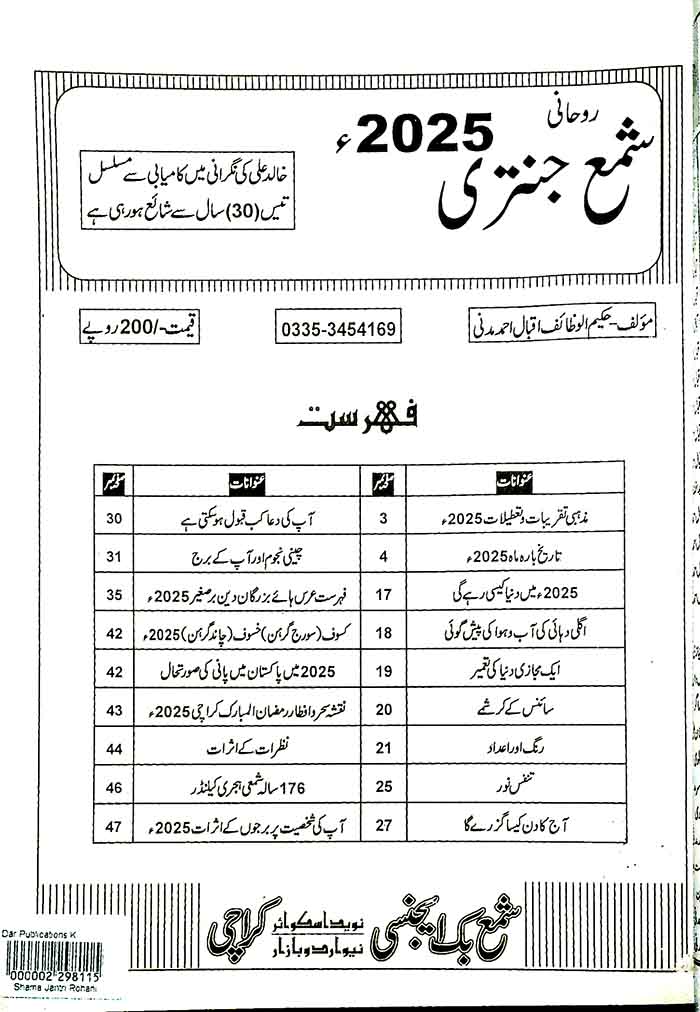 روحانی
شمع جنتری
2025ء
خالد علی کی نگرانی میں کامیابی سے مسلسل
تیس (30) سال سے شائع ہو رہی ہے
مؤلف-حکیم الوظائف اقبال احمد مدنی
0335-3454169
قیمت-/200 روپے
فہرست
عنوانات صفحہ نمبر عنوانات صفحہ نمبر
مذہبی تقریبات و تعطیلات 2025ء 3 آپ کی دعا کب قبول ہو سکتی ہے 30
تاریخ بارہ ماہ 2025ء 4 چینی نجوم اور آپ کے برج 31
2025ء میں دنیا کیسی رہے گی 17 فہرست عرس ہائے بزرگان دین برصغیر 2025ء 35
اگلی دہائی کی آب و ہوا کی پیش گوئی 18 کسوف (سورج گرہن) خسوف (چاند گرہن) 2025ء 42
ایک مجازی دنیا کی تعمیر 19 2025 میں پاکستان میں پانی کی صورتحال 42
سائنس کے کرشمے 20 نقشہ سحر و افطار رمضان المبارک کراچی 2025ء 43
رنگ اور اعداد 21 نظرات کے اثرات 44
تنفس نور 25 176 سالہ شمعی ہجری کیلنڈر 46
آج کا دن کیسا گزرے گا 27 آپ کی شخصیت پر برجوں کے اثرات 2025ء 47
شمع بک ایجنسی
نوید اسکوائر
نیو اردو بازار
کراچی
Dar Publications K
000002 298115
Shama Jantri Rohani